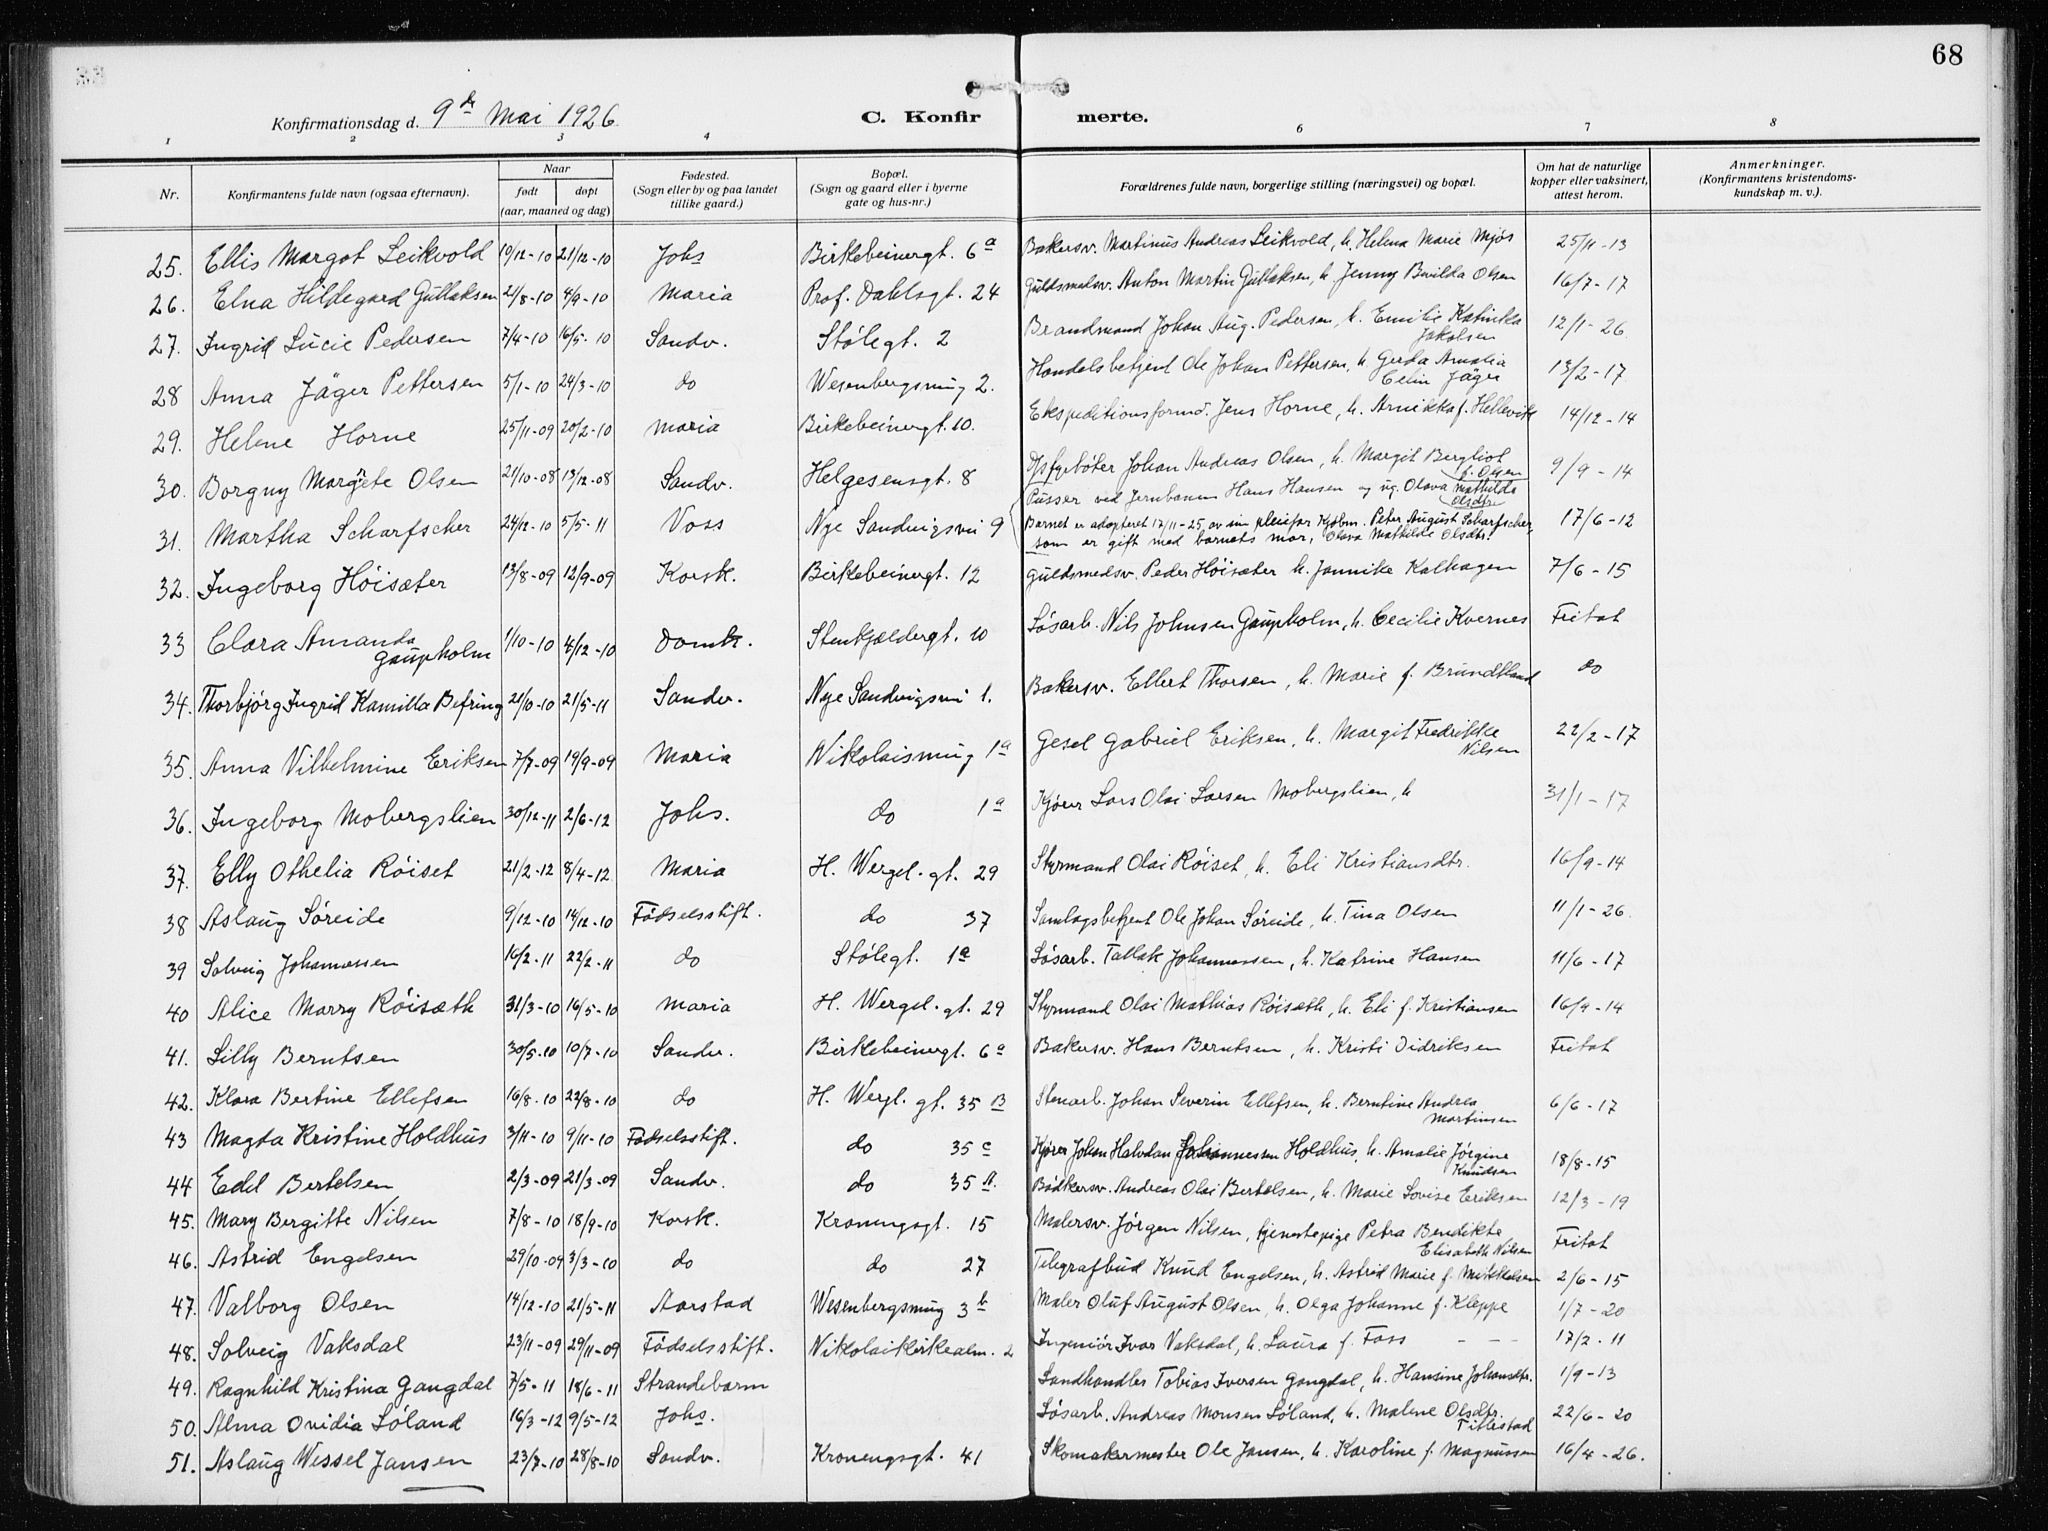 68
Konfirmationsdag d. 9de Mai 1926. C. Konfirmerte.
1 2 3 4 6 7 8
Nr. Konfirmantens fulde navn (ogsaa efternavn). Naar født døpt (aar, maaned og dag) Fødested. (Sogn eller by og paa landet tillike gaard.) Bopæl. (Sogn og gaard eller i byerne gate og hus-nr.) Forældrenes fulde navn, borgerlige stilling (næringsvei) og bopæl. Om hat de naturlige kopper eller vaksinert, attest herom. Anmerkninger. (Konfirmantens kristendomskundskap m. v.).
25. Ellis Margot Leikvold 19/12-10 21/12-10 Johs Birkebeinergt. 6a Bakersv. Martinus Andreas Leikvold, h. Helena Marie Mjøs 25/11-13
26. Elna Hildegard Gullaksen 21/8-10 4/9-10 Maria Prof. Dahlsgt. 24 Guldsmedsv. Anton Martin Gullaksen, h. Jenny Bwilda Olsen 16/7-17
27. Ingrid Lucie Pedersen 7/4-10 16/5-10 Sandv. Stølegt. 2 Brandmand Johan Aug. Pedersen, h. Emilie Katinka Jakobsen 12/1-26
28 Anna Jäger Pettersen 5/1-10 24/3-10 do Wesenbergsmug 2. Handelsbetjent Ole Johan Pettersen, h. Gerda Amalia Celin Jäger 13/2-17
29. Helene Horne 25/11-09 20/2-10 Maria Birkebeinergt. 10. Ekspeditionsformd. Jens Horne, h. Arnikka f. Hellevik 14/12-14
30. Borgny Margrete Olsen 21/10-08 13/12-08 Sandv. Helgesensgt. 8 Ofsfyrbøter Johan Andreas Olsen, h. Margit Bergliot f. Olsen 9/9-14
31. Martha Scharfscher 24/12-10 5/5-11 Voss Nye Sandvigsvei 9 Pusser ved Jernbanen Hans Hansen og ug. Olava Mathilde Olsdtr. 17/6-12
Barnet er adopteret 17/11-25, av sin pleiefar Kjøbm. Peter August Scharfscher,
som er gift med barnets mor, Olava Mathilde Olsdtr.
32. Ingeborg Høisæter 13/8-09 12/9-09 Korsk. Birkebeinergt. 12 Guldsmedsv. Peder Høisæter h. Jannike Kalhagen 7/6-15
33 Clara Amanda Gaupholm 1/10-10 4/12-10 Domk. Stenkjeldergt. 10 Løsarb. Nils Johnsen Gaupholm, h. Cecilie Kvernes Fritat
34. Thorbjørg Ingrid Kamilla Befring 21/10-10 21/5-11 Sandv. Nye Sandvigsvei 1. Bakersv. Ellert Thorsen, h. Marie f. Brundtland do
35. Anna Vilhelmine Eriksen 7/7-09 19/9-09 Maria Nikolaismug 1a Gesel Gabriel Eriksen, h. Margit Fredrikke Nilsen 22/2-17
36. Ingeborg Mobergslien 30/12-11 2/6-12 Johs. do 1a Kjører Lars Olai Larsen Mobergslien, h 31/1-17
37. Elly Othelia Røiset 21/2-12 8/4-12 Maria H. Wergel.gt. 29 Styrmand Olai Røiset, h. Eli Kristiansdtr. 16/9-14
38 Aslaug Søreide 9/12-10 14/12-10 Fødselsstift. do 37 Samlagsbetjent Ole Johan Søreide, h. Tina Olsen 11/1-26.
39 Solveig Johannessen 16/2-11 22/2-11 do Stølegt. 1a Løsarb. Tallak Johannessen, h. Katrine Hansen 11/6-17
40 Alice Marry Røisæth 31/3-10 16/5-10 Maria H. Wergel.gt. 29 Styrmand Olai Mathias Røisæth, h. Eli f. Kristiansen 16/9-14
41. Lilly Berntsen 30/5-10 10/7-10 Sandv. Birkebeinergt. 6a Bakersv. Hans Berntsen, h. Kristi Didriksen Fritat
42. Klara Bertine Ellefsen 16/8-10 22/8-10 do H. Wergl. gt. 35 B Stenarb. Johan Severin Ellefsen, h. Berntine Andrea Martinsen 6/6-17
43 Magda Kristine Holdhus 3/11-10 9/11-10 Fødselsstift. do 35 c Kjører Johan Halvdan Johannessen Holdhus, h. Amalie Jørgine Knudsen 18/8-15
44 Edel Bertelsen 2/3-09 21/3-09 Sandv. do 35 A. Bødkersv. Andreas Olai Bertelsen, h. Marie Lovise Eriksen 12/3-19
45. Mary Bergitte Nilsen 7/8-10 18/9-10 Korsk. Kroningsgt. 15 Malersv. Jørgen Nilsen, tjenestepige Petra Bendikte Elisabeth Nilsen Fritat
46. Astrid Engelsen 29/10-09 3/3-10 do do 27 Telegrafbud Knud Engelsen, h. Astrid Marie f. Mikkelsen 2/6-15
47. Valborg Olsen 14/12-10 21/5-11 Aarstad Wesenbergsmug 3b Maler Oluf August Olsen, h. Olga Johanne f. Kleppe 1/7-20
48. Solveig Vaksdal 23/11-09 29/11-09 Fødselsstift. Nikolaikirkealm. 2 Ingeniør Ivar Vaksdal, h. Laura f. Foss - - - 17/2-11
49. Ragnhild Kristina Gangdal 7/5-11 18/6-11 Strandebarm Landhandler Tobias Iversen Gangdal, h. Hansine Johansdtr. 1/9-13
50. Alma Ovidia Løland 16/3-12 9/5-12 Johs. Løsarb. Andreas Monsen Løland, h. Malene Olsdtr. Fitlestad 22/6-20
51. Aslaug Wessel Jansen 23/7-10 28/8-10 Sandv. Kroningsgt. 41 Skomakermester Ole Jansen, h. Karoline f. Magnussen 16/4-26.